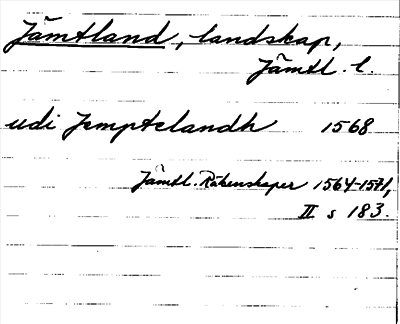 Jämtland, landskap,
Jämtl. l.
udi Jemptelandh 1568
Jämtl. Räkenskaper 1564-1571,
II s 183.